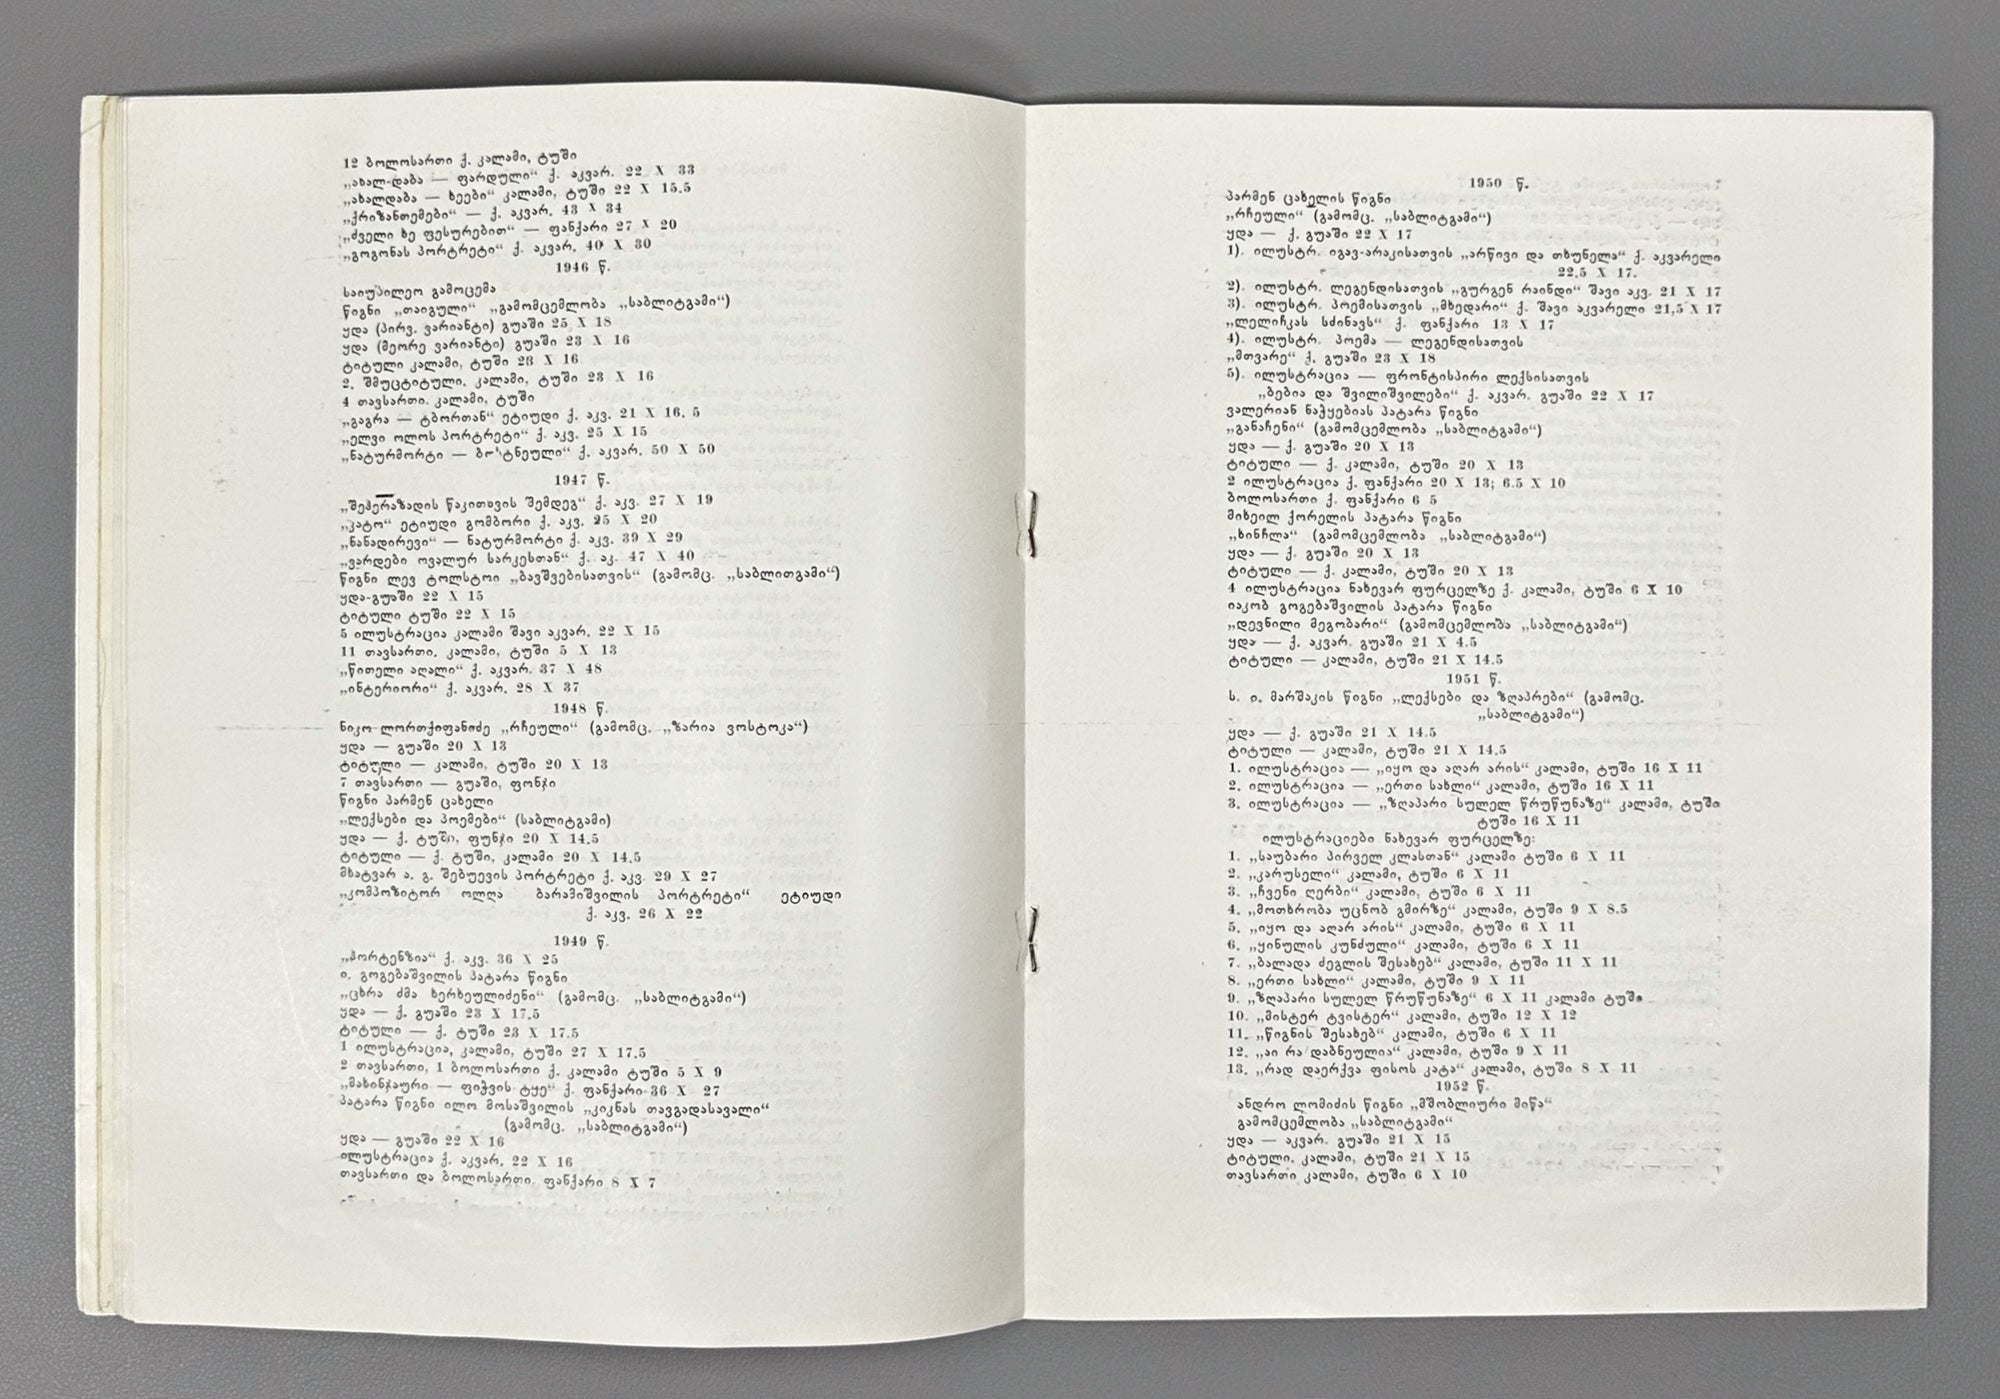 12 ბოლოსართი ქ. კალამი, ტუში
„ახალ-დაბა — ფარდული“ ქ. აკვარ. 22 X 33
„ახალდაბა — ხეები“ კალამი, ტუში 22 X 15.5
„ქრიზანთემები“ — ქ. აკვარ. 43 X 34
„ძველი ხე ფესურებით“ — ფანქარი 27 X 20
„გოგონას პორტრეტი“ ქ. აკვარ. 40 X 30
1946 წ.
საიუბილეო გამოცემა
წიგნი „თაიგული“ „გამომცემლობა „საბლიტგამი“)
ყდა (პირვ. ვარიანტი) გუაში 25 X 18
ყდა (მეორე ვარიანტი) გუაში 23 X 16
ტიტული კალამი, ტუში 23 X 16
2. შმუცტიტული. კალამი, ტუში 23 X 16
4 თავსართი. კალამი, ტუში
„გაგრა — ტბორთან“ ეტიუდი ქ. აკვ. 21 X 16. 5
„ელვი ოლოს პორტრეტი“ ქ. აკვ. 25 X 15
„ნატურმორტი — ბოსტნეული“ ქ. აკვარ. 50 X 50
1947 წ.
„შეჰერაზადის წაკითხვის შემდეგ“ ქ. აკვ. 27 X 19
„პატო“ ეტიუდი გომბორი ქ. აკვ. 25 X 20
„ნანადირევი“ — ნატურმორტი ქ. აკვ. 39 X 29
„ვარდები ოვალურ სარკესთან“ ქ. აკ. 47 X 40
წიგნი ლევ ტოლსტოი „ბავშვებისათვის“ (გამომც. „საბლითგამი“)
ყდა-გუაში 22 X 15
ტიტული ტუში 22 X 15
5 ილუსტრაცია კალამი შავი აკვარ. 22 X 15
11 თავსართი. კალამი, ტუში 5 X 13
„წითელი აღალი“ ქ. აკვარ. 37 X 48
„ინტერიორი“ ქ. აკვარ. 28 X 37
1948 წ.
ნიკო ლორთქიფანიძე „რჩეული“ (გამომც. „ზარია ვოსტოკა“)
ყდა — გუაში 20 X 13
ტიტული — კალამი, ტუში 20 X 13
7 თავსართი — გუაში, ფონჯი
წიგნი პარმენ ცახელი
„ლექსები და პოემები“ (საბლიტგამი)
ყდა — ქ. ტუში, ფუნჯი 20 X 14.5
ტიტული — ქ. ტუში, კალამი 20 X 14.5
მხატვარ ა. გ. შებუევის პორტრეტი ქ. აკვ. 29 X 27
„კომპოზიტორ ოლღა ბარამიშვილის პორტრეტი“ ეტიუდი
ქ. აკვ. 26 X 22
1949 წ.
„ჰორტენზია“ ქ. აკვ. 36 X 25
ი. გოგებაშვილის პატარა წიგნი
„ცხრა ძმა ხერხეულიძენი“ (გამომც. „საბლიტგამი“)
ყდა — ქ. გუაში 23 X 17.5
ტიტული — ქ. ტუში 23 X 17.5
1 ილუსტრაცია, კალამი, ტუში 27 X 17.5
2 თავსართი, 1 ბოლოსართი ქ. კალამი ტუში 5 X 9
„მახინჯაური — ფიჭვის ტყე“ ქ. ფანქარი 36 X 27
პატარა წიგნი ილო მოსაშვილის „კიკნას თავგადასავალი“
(გამომც. „საბლიტგამი“)
ყდა — გუაში 22 X 16
ილუსტრაცია ქ. აკვარ. 22 X 16
თავსართი და ბოლოსართი. ფანქარი 8 X 7
1950 წ.
პარმენ ცახელის წიგნი
„რჩეული“ (გამომც. „საბლიტგამი“)
ყდა — ქ. გუაში 22 X 17
1). ილუსტრ. იგავ-არაკისათვის „არწივი და თხუნელა“ ქ. აკვარელი
22.5 X 17.
2). ილუსტრ. ლეგენდისათვის „გურგენ რაინდი“ შავი აკვ. 21 X 17
3). ილუსტრ. პოემისათვის „მხედარი“ ქ. შავი აკვარელი 21,5 X 17
„ლელიჩკას სძინავს“ ქ. ფანქარი 13 X 17
4). ილუსტრ. პოემა — ლეგენდისათვის
„მთვარე“ ქ. გუაში 23 X 18
5). ილუსტრაცია — ფრონტისპირი ლექსისათვის
„ბებია და შვილიშვილები“ ქ. აკვარ. გუაში 22 X 17
ვალერიან ნაჭყებიას პატარა წიგნი
„განაჩენი“ (გამომცემლობა „საბლიტგამი“)
ყდა — ქ. გუაში 20 X 13
ტიტული — ქ. კალამი, ტუში 20 X 13
2 ილუსტრაცია ქ. ფანქარი 20 X 13; 6.5 X 10
ბოლოსართი ქ. ფანქარი 6 5
მიხეილ ქორელის პატარა წიგნი
„ხინჩლა“ (გამომცემლობა „საბლიტგამი“)
ყდა — ქ. გუაში 20 X 13
ტიტული — ქ. კალამი, ტუში 20 X 13
4 ილუსტრაცია ნახევარ ფურცელზე ქ. კალამი, ტუში 6 X 10
იაკობ გოგებაშვილის პატარა წიგნი
„დევნილი მეგობარი“ (გამომცემლობა „საბლიტგამი“)
ყდა — ქ. აკვარ. გუაში 21 X 4.5
ტიტული — კალამი, ტუში 21 X 14.5
1951 წ.
ს. ი. მარშაკის წიგნი „ლექსები და ზღაპრები“ (გამომც.
„საბლიტგამი“)
ყდა — ქ. გუაში 21 X 14.5
ტიტული — კალამი, ტუში 21 X 14.5
1. ილუსტრაცია — „იყო და აღარ არის“ კალამი, ტუში 16 X 11
2. ილუსტრაცია — „ერთი სახლი“ კალამი, ტუში 16 X 11
3. ილუსტრაცია — „ზღაპარი სულელ წრუწუნაზე“ კალამი, ტუში
ტუში 16 X 11
ილუსტრაციები ნახევარ ფურცელზე:
1. „საუბარი პირველ კლასთან“ კალამი ტუში 6 X 11
2. „კარუსელი“ კალამი, ტუში 6 X 11
3. „ჩვენი ღერბი“ კალამი, ტუში 6 X 11
4. „მოთხრობა უცნობ გმირზე“ კალამი, ტუში 9 X 8.5
5. „იყო და აღარ არის“ კალამი, ტუში 6 X 11
6. „ყინულის კუნძული“ კალამი, ტუში 6 X 11
7. „ბალადა ძეგლის შესახებ“ კალამი, ტუში 11 X 11
8. „ერთი სახლი“ კალამი, ტუში 9 X 11
9. „ზღაპარი სულელ წრუწუნაზე“ 6 X 11 კალამი ტუში.
10. „მისტერ ტვისტერ“ კალამი, ტუში 12 X 12
11. „წიგნის შესახებ“ კალამი, ტუში 6 X 11
12. „აი რა დაბნეულია“ კალამი, ტუში 9 X 11
13. „რად დაერქვა ფისოს კატა“ კალამი, ტუში 8 X 11
1952 წ.
ანდრო ლომიძის წიგნი „მშობლიური მიწა“
გამომცემლობა „საბლიტგამი“
ყდა — აკვარ. გუაში 21 X 15
ტიტული. კალამი, ტუში 21 X 15
თავსართი კალამი, ტუში 6 X 10